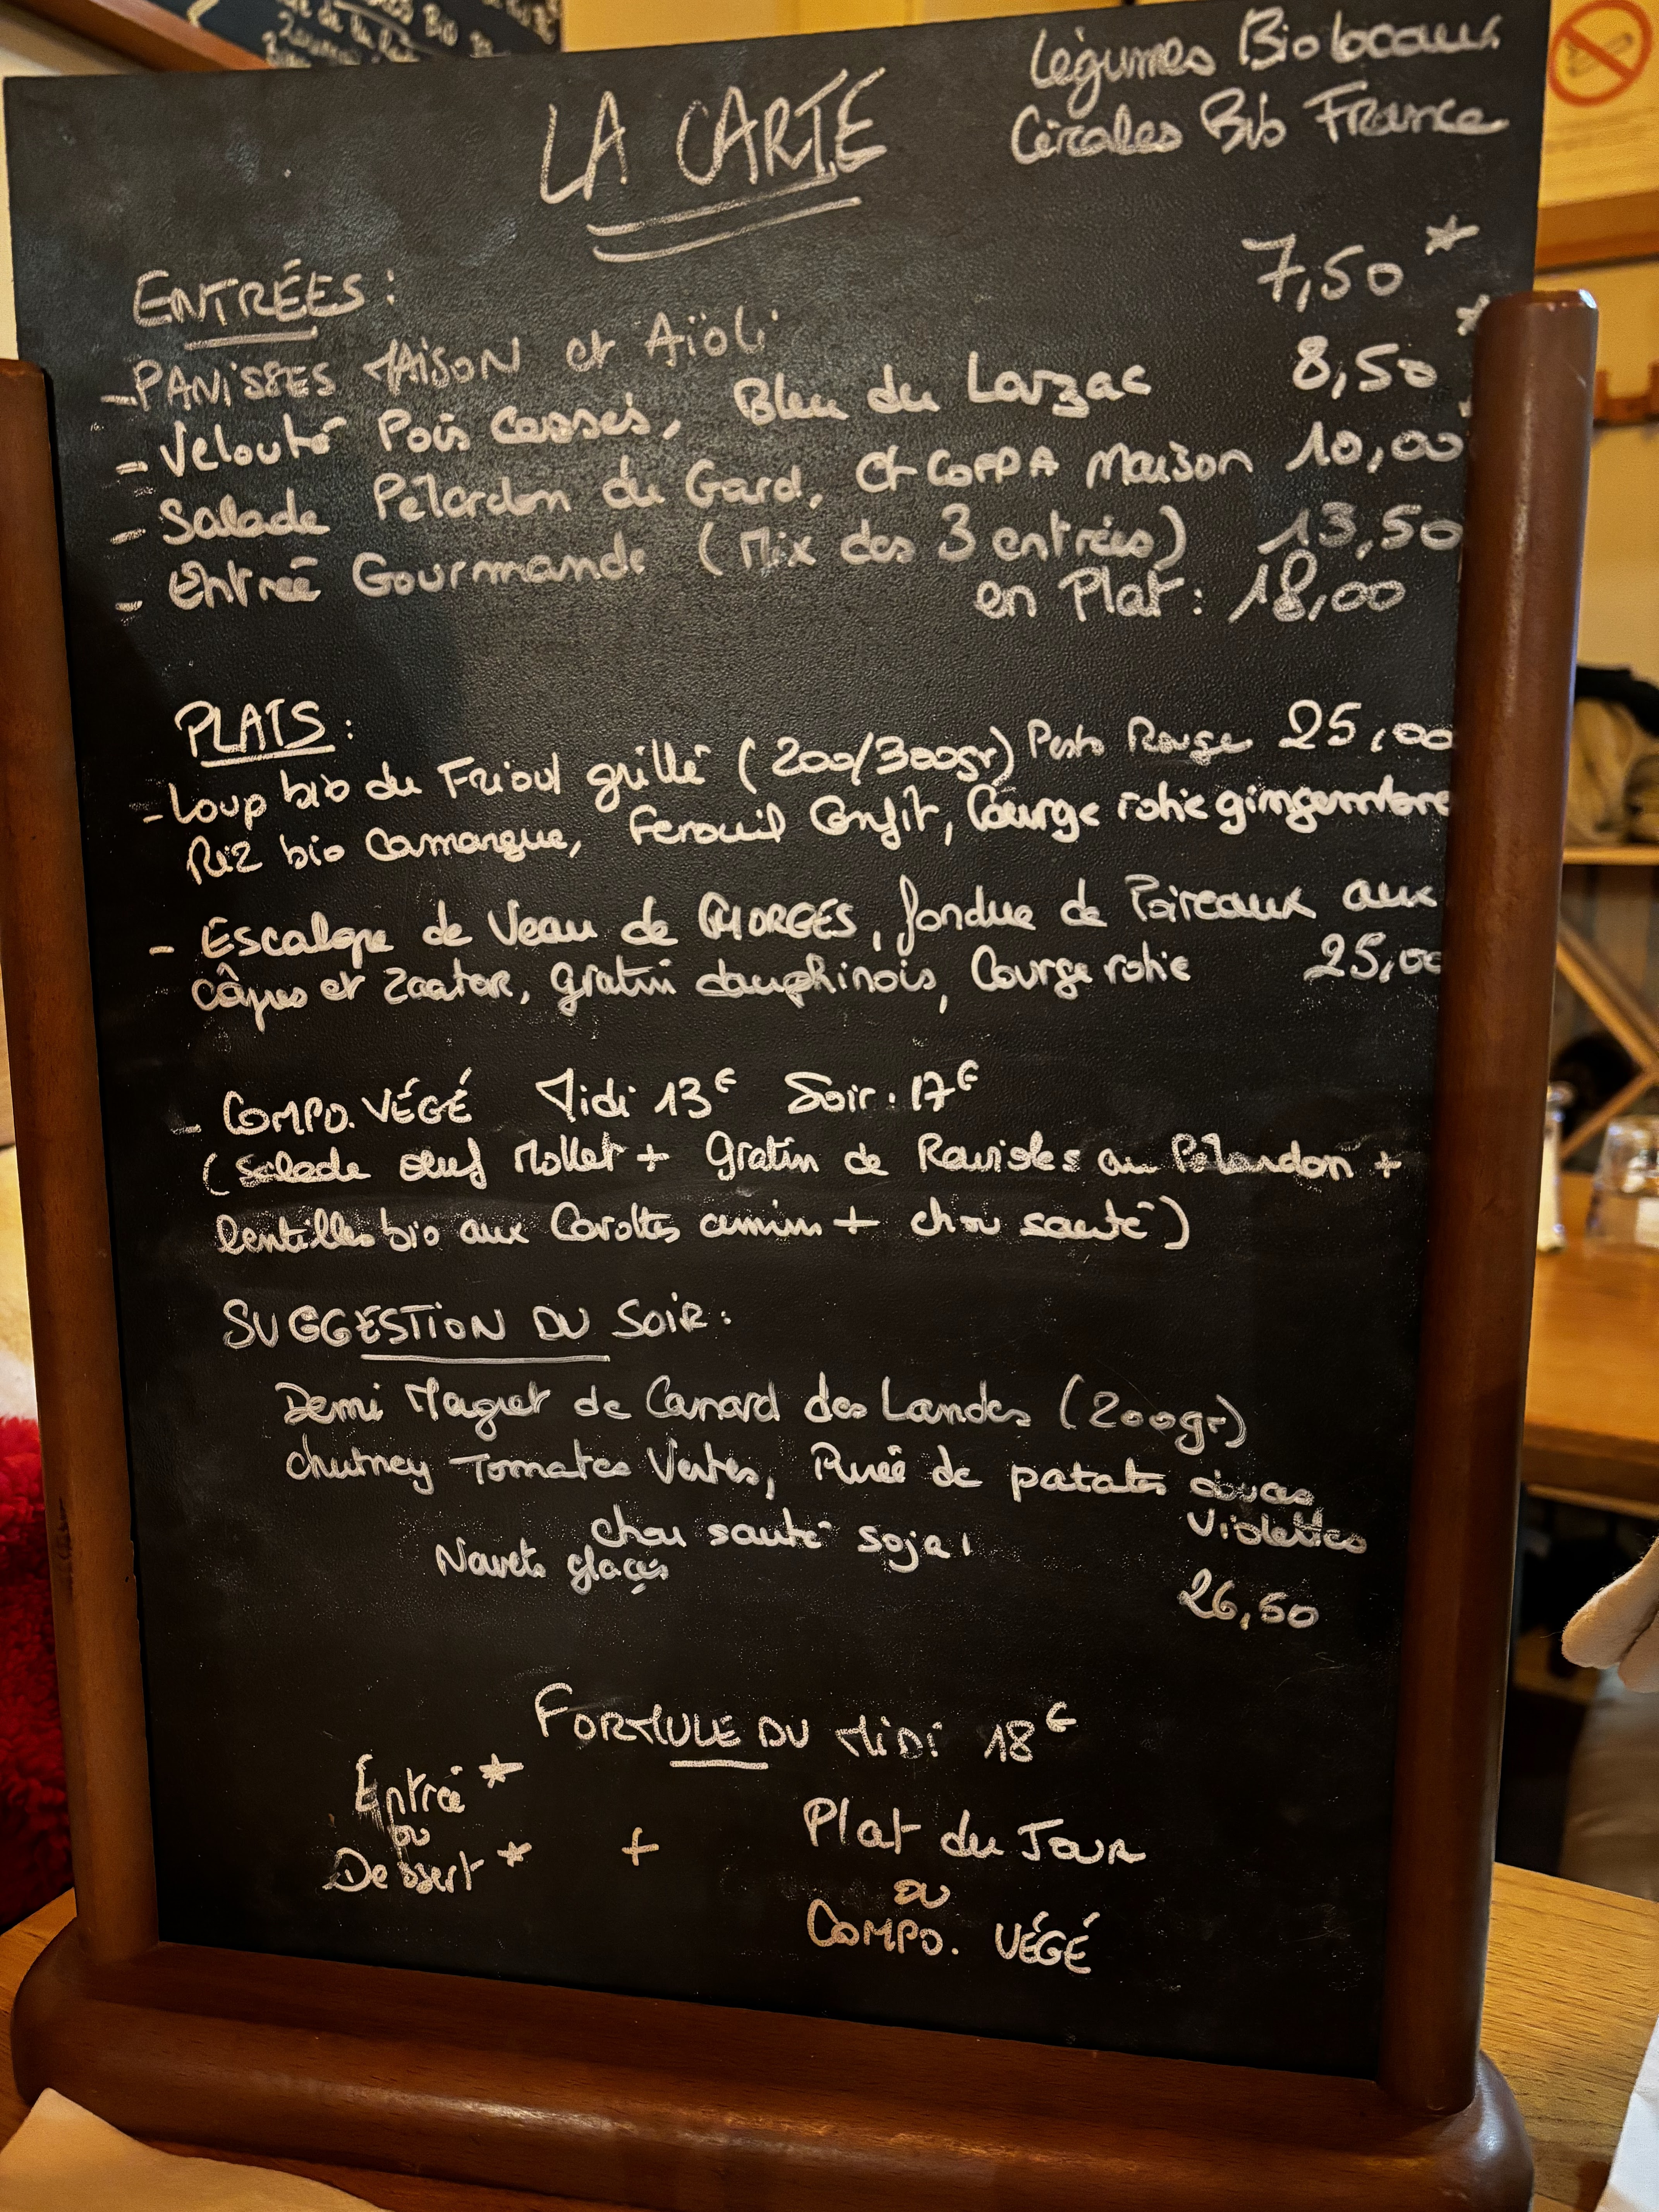 Légumes Bio locaux
Céréales Bio France
LA CARTE
ENTRÉES :
- PANISSES MAISON et Aïoli 7,50 *
- Velouté Pois Cassés, Bleu du Larzac 8,50 *
- Salade Pélardon du Gard, et COPPA Maison 10,00
- Entrée Gourmande (Mix des 3 entrées) 13,50
en Plat : 18,00
PLATS :
- Loup bio du Frioul grillé (200/300gr) Pesto Rouge 25,00
Riz bio Camargue, Fenouil Confit, Courge rotie gingembre
- Escalope de Veau de GHORGES, fondue de Poireaux aux
câpres et Zaatar, gratin dauphinois, Courge rotie 25,00
- COMPO. VÉGÉ Midi 13€ Soir : 17€
(Salade œuf Mollet + Gratin de Ravioles au Pélardon +
lentilles bio aux Carottes cumin + chou sauté)
SUGGESTION DU SOIR :
Demi Magret de Canard des Landes (200gr)
chutney Tomates Vertes, Purée de patates douces
Violettes
chou sauté soja,
Navets glaçés
26,50
FORMULE DU MIDI 18€
Entrée *
ou
Dessert *
+
Plat du JOUR
OU
COMPO. VÉGÉ